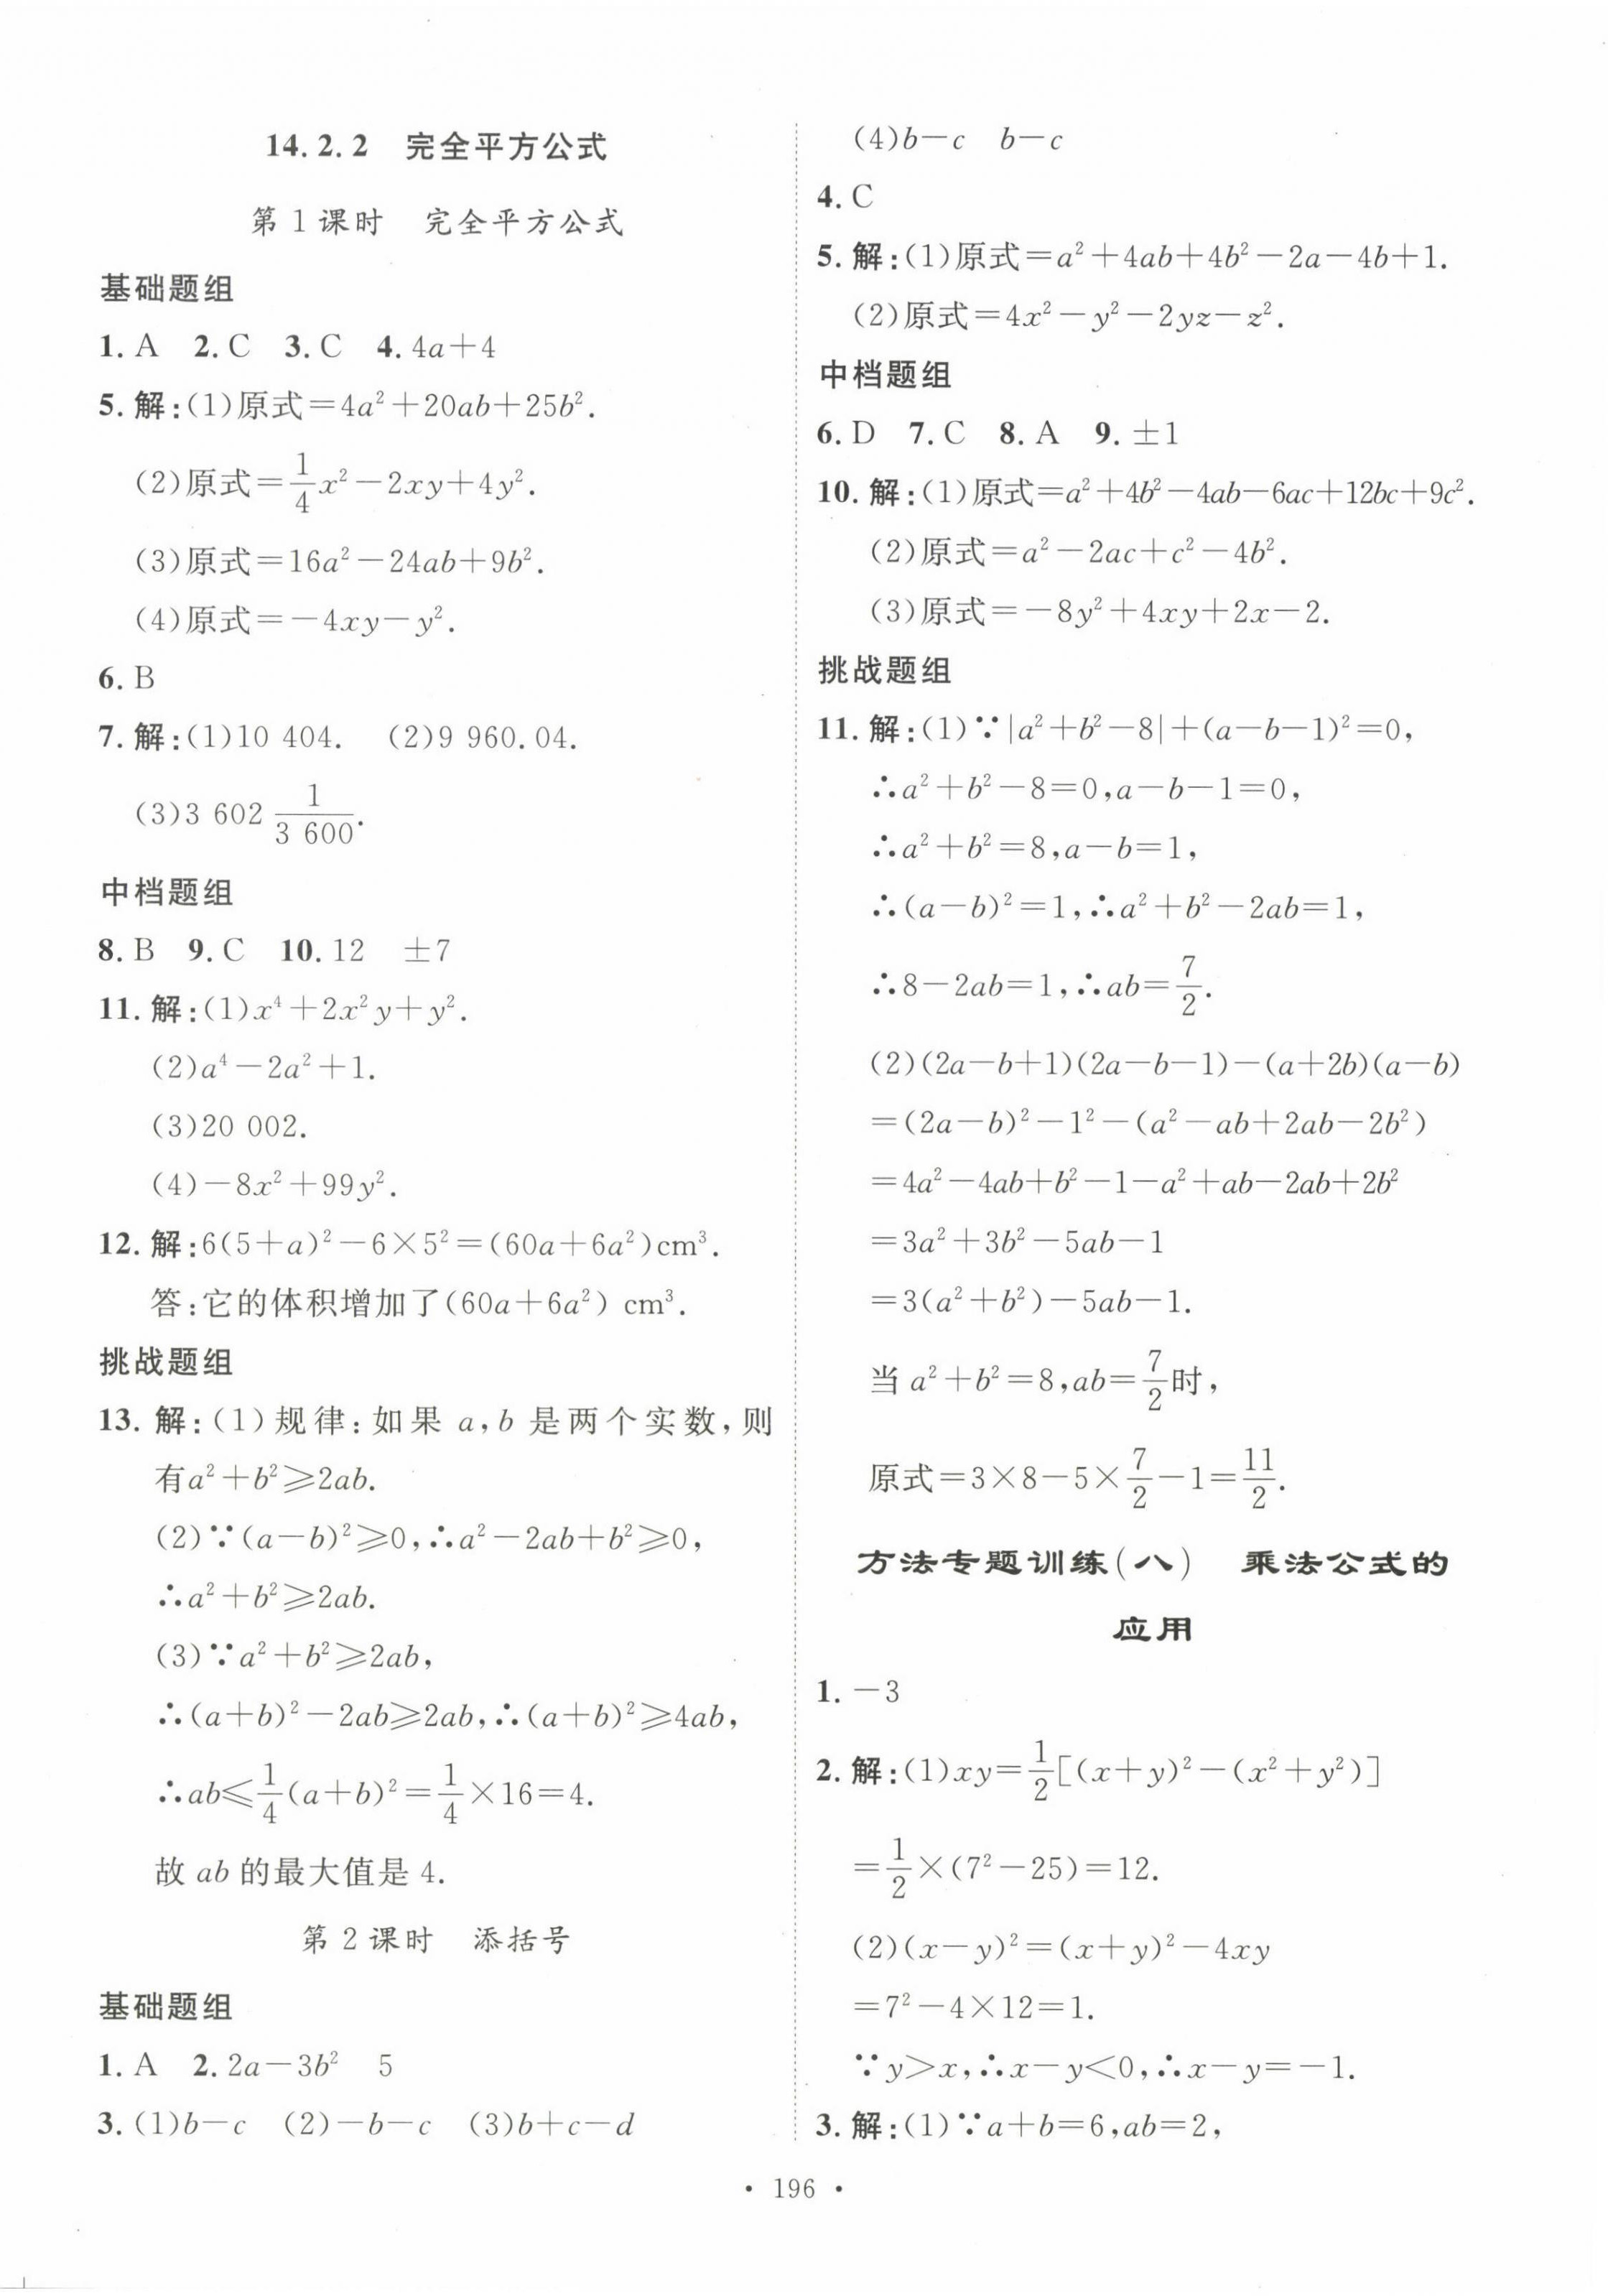 14.2.2 完全平方公式
第 1 课时 完全平方公式
基础题组
1. A 2. C 3. C 4. 4a+4
5. 解:(1)原式=4a²+20ab+25b².
(2)原式=\frac{1}{4}x²-2xy+4y².
(3)原式=16a²-24ab+9b².
(4)原式=-4xy-y².
6. B
7. 解:(1)10 404. (2)9 960.04.
(3)3 602\frac{1}{3 600}.
中档题组
8. B 9. C 10. 12 ±7
11. 解:(1)x⁴+2x²y+y².
(2)a⁴-2a²+1.
(3)20 002.
(4)-8x²+99y².
12. 解:6(5+a)²-6×5²=(60a+6a²)cm³.
答:它的体积增加了(60a+6a²) cm³.
挑战题组
13. 解:(1)规律:如果 a,b 是两个实数,则
有a²+b²⩾2ab.
(2)∵(a-b)²⩾0,∴a²-2ab+b²⩾0,
∴a²+b²⩾2ab.
(3)∵a²+b²⩾2ab,
∴(a+b)²-2ab⩾2ab,∴(a+b)²⩾4ab,
∴ab⩽\frac{1}{4}(a+b)²=\frac{1}{4}×16=4.
故 ab 的最大值是 4.
第 2 课时 添括号
基础题组
1. A 2. 2a-3b² 5
3. (1)b-c (2)-b-c (3)b+c-d
(4)b-c b-c
4. C
5. 解:(1)原式=a²+4ab+4b²-2a-4b+1.
(2)原式=4x²-y²-2yz-z².
中档题组
6. D 7. C 8. A 9. ±1
10. 解:(1)原式=a²+4b²-4ab-6ac+12bc+9c².
(2)原式=a²-2ac+c²-4b².
(3)原式=-8y²+4xy+2x-2.
挑战题组
11. 解:(1)∵|a²+b²-8|+(a-b-1)²=0,
∴a²+b²-8=0,a-b-1=0,
∴a²+b²=8,a-b=1,
∴(a-b)²=1,∴a²+b²-2ab=1,
∴8-2ab=1,∴ab=\frac{7}{2}.
(2)(2a-b+1)(2a-b-1)-(a+2b)(a-b)
=(2a-b)²-1²-(a²-ab+2ab-2b²)
=4a²-4ab+b²-1-a²+ab-2ab+2b²
=3a²+3b²-5ab-1
=3(a²+b²)-5ab-1.
当 a²+b²=8,ab=\frac{7}{2}时,
原式=3×8-5×\frac{7}{2}-1=\frac{11}{2}.
方法专题训练(八) 乘法公式的
应用
1. -3
2. 解:(1)xy=\frac{1}{2}[(x+y)²-(x²+y²)]
=\frac{1}{2}×(7²-25)=12.
(2)(x-y)²=(x+y)²-4xy
=7²-4×12=1.
∵y>x,∴x-y<0,∴x-y=-1.
3. 解:(1)∵a+b=6,ab=2,
• 196 •